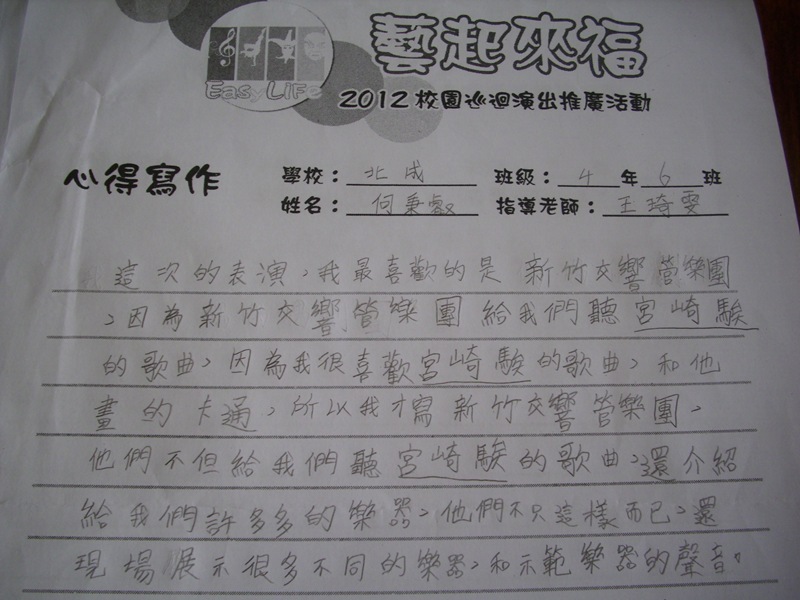 EasyLife
藝起來福
2012校園巡迴演出推廣活動
心得寫作
學校：北成 班級：4年6班
姓名：何秉叡 指導老師：王琦雯
這次的表演，我最喜歡的是新竹交響管樂團
，因為新竹交響管樂團給我們聽宮崎駿
的歌曲，因為我很喜歡宮崎駿的歌曲，和他
畫的卡通，所以我才寫新竹交響管樂團。
他們不但給我們聽宮崎駿的歌曲，還介紹
給我們許多多的樂器，他們不只這樣而已，還
現場展示很多不同的樂器，和示範樂器的聲音。